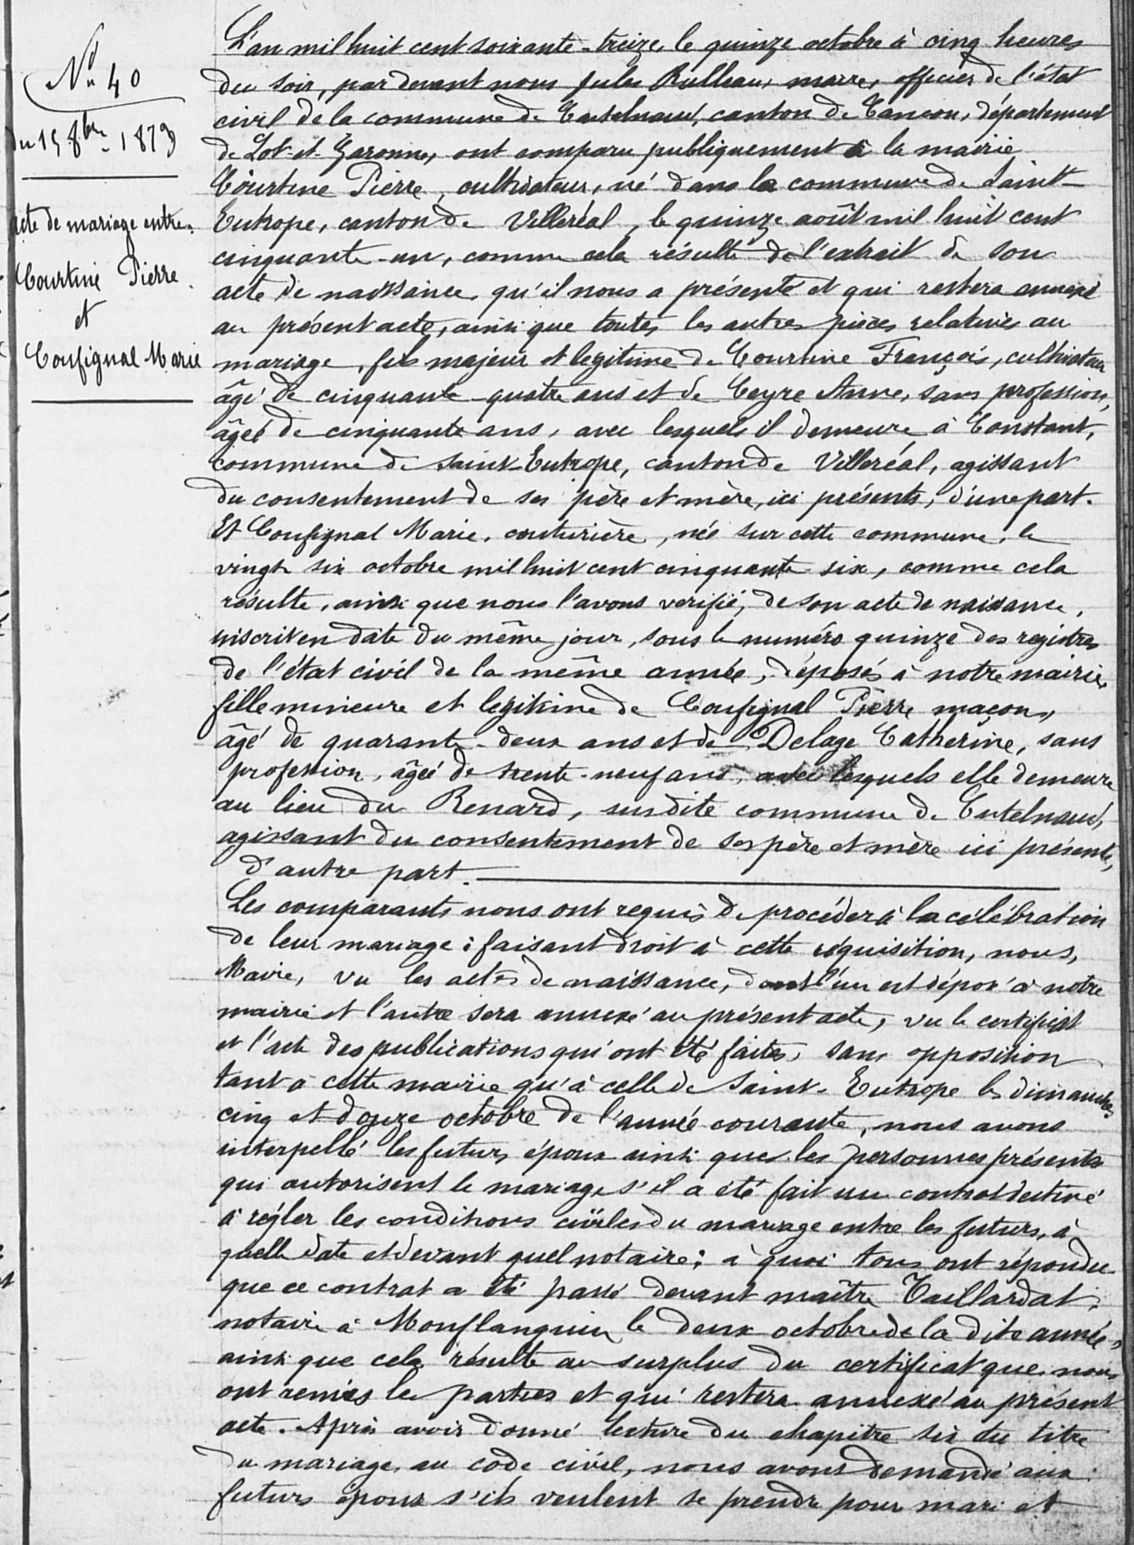 N° 40
du 15 8bre 1873
Acte de mariage entre
Courtine Pierre
et
Confignal Marie
L'an mil huit cent soixante-treize, le quinze octobre à cinq heures
du soir, par devant nous Jules Rulleau, maire, officier de l'état
civil de la commune de Castelnaud, canton de Cancon, département
de Lot-et-Garonne, ont comparu publiquement à la mairie
Courtine Pierre, cultivateur, né dans la commune de Saint-
Eutrope, canton de Villeréal, le quinze août mil huit cent
cinquante-un, comme cela résulte de l'extrait de son
acte de naissance, qu'il nous a présenté et qui restera annexé
au présent acte, ainsi que toutes les autres pièces relatives au
mariage, fils majeur et légitime de Courtine François, cultivateur
âgé de cinquante-quatre ans et de Ceyre Anne, sans profession,
âgée de cinquante ans, avec lesquels il demeure à Constant,
commune de Saint-Eutrope, canton de Villeréal, agissant
du consentement de ses père et mère, ici présents, d'une part.
Et Confignal Marie, couturière, née sur cette commune, le
vingt six octobre mil huit cent cinquante-six, comme cela
résulte, ainsi que nous l'avons vérifié, de son acte de naissance,
inscrit en date du même jour, sous le numéro quinze des registres
de l'état civil de la même année, déposés à notre mairie,
fille mineure et légitime de Confignal Pierre, maçon,
âgé de quarante-deux ans et de Delage Catherine, sans
profession, âgée de trente-neuf ans, avec lesquels elle demeure
au lieu du Renard, susdite commune de Castelnaud,
agissant du consentement de ses père et mère ici présents,
d'autre part.
Les comparants nous ont requis de procéder à la célébration
de leur mariage : faisant droit à cette réquisition, nous,
Maire, vu les actes de naissance, dont l'un est déposé à notre
mairie et l'autre sera annexé au présent acte, vu le certificat
et l'acte des publications qui ont été faites, sans opposition
tant à cette mairie qu'à celle de Saint-Eutrope les dimanches
cinq et douze octobre de l'année courante, nous avons
interpellé les futurs époux ainsi que les personnes présentes
qui autorisent le mariage s'il a été fait un contrat destiné
à régler les conditions civiles du mariage entre les futurs, à
quelle date et devant quel notaire ; à quoi tous ont répondu
que ce contrat a été passé devant maître Taillardat,
notaire à Monflanquin le deux octobre de la dite année,
ainsi que cela résulte au surplus du certificat que nous
ont remis les parties et qui restera annexé au présent
acte. Après avoir donné lecture du chapitre six du titre
du mariage, au code civil, nous avons demandé aux
futurs époux s'ils veulent se prendre pour mari et